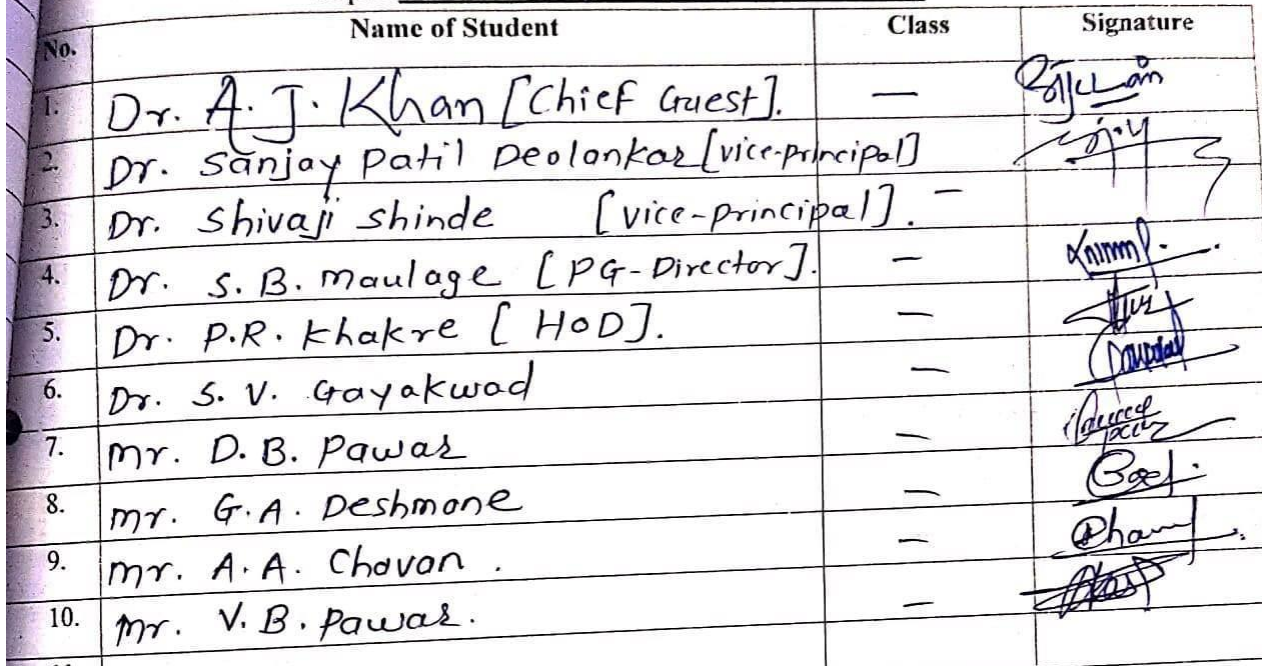 No. Name of Student Class Signature
1. Dr. A. J. Khan [Chief Guest]. —
2. Dr. Sanjay Patil Deolankar [vice-principal]
3. Dr. Shivaji Shinde [vice-principal]. —
4. Dr. S. B. Maulage [PG-Director]. —
5. Dr. P.R. Khakre [HOD]. —
6. Dr. S. V. Gayakwad —
7. Mr. D. B. Pawar —
8. Mr. G. A. Deshmane —
9. Mr. A. A. Chavan . —
10. Mr. V. B. Pawar. —